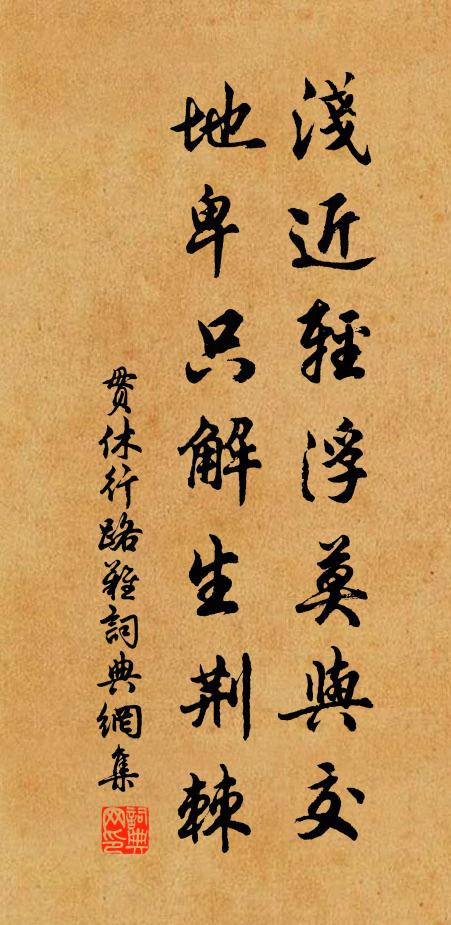 淺近輕浮莫與交
地卑只解生荆棘
貫休行路難詞典網集
詞典網印